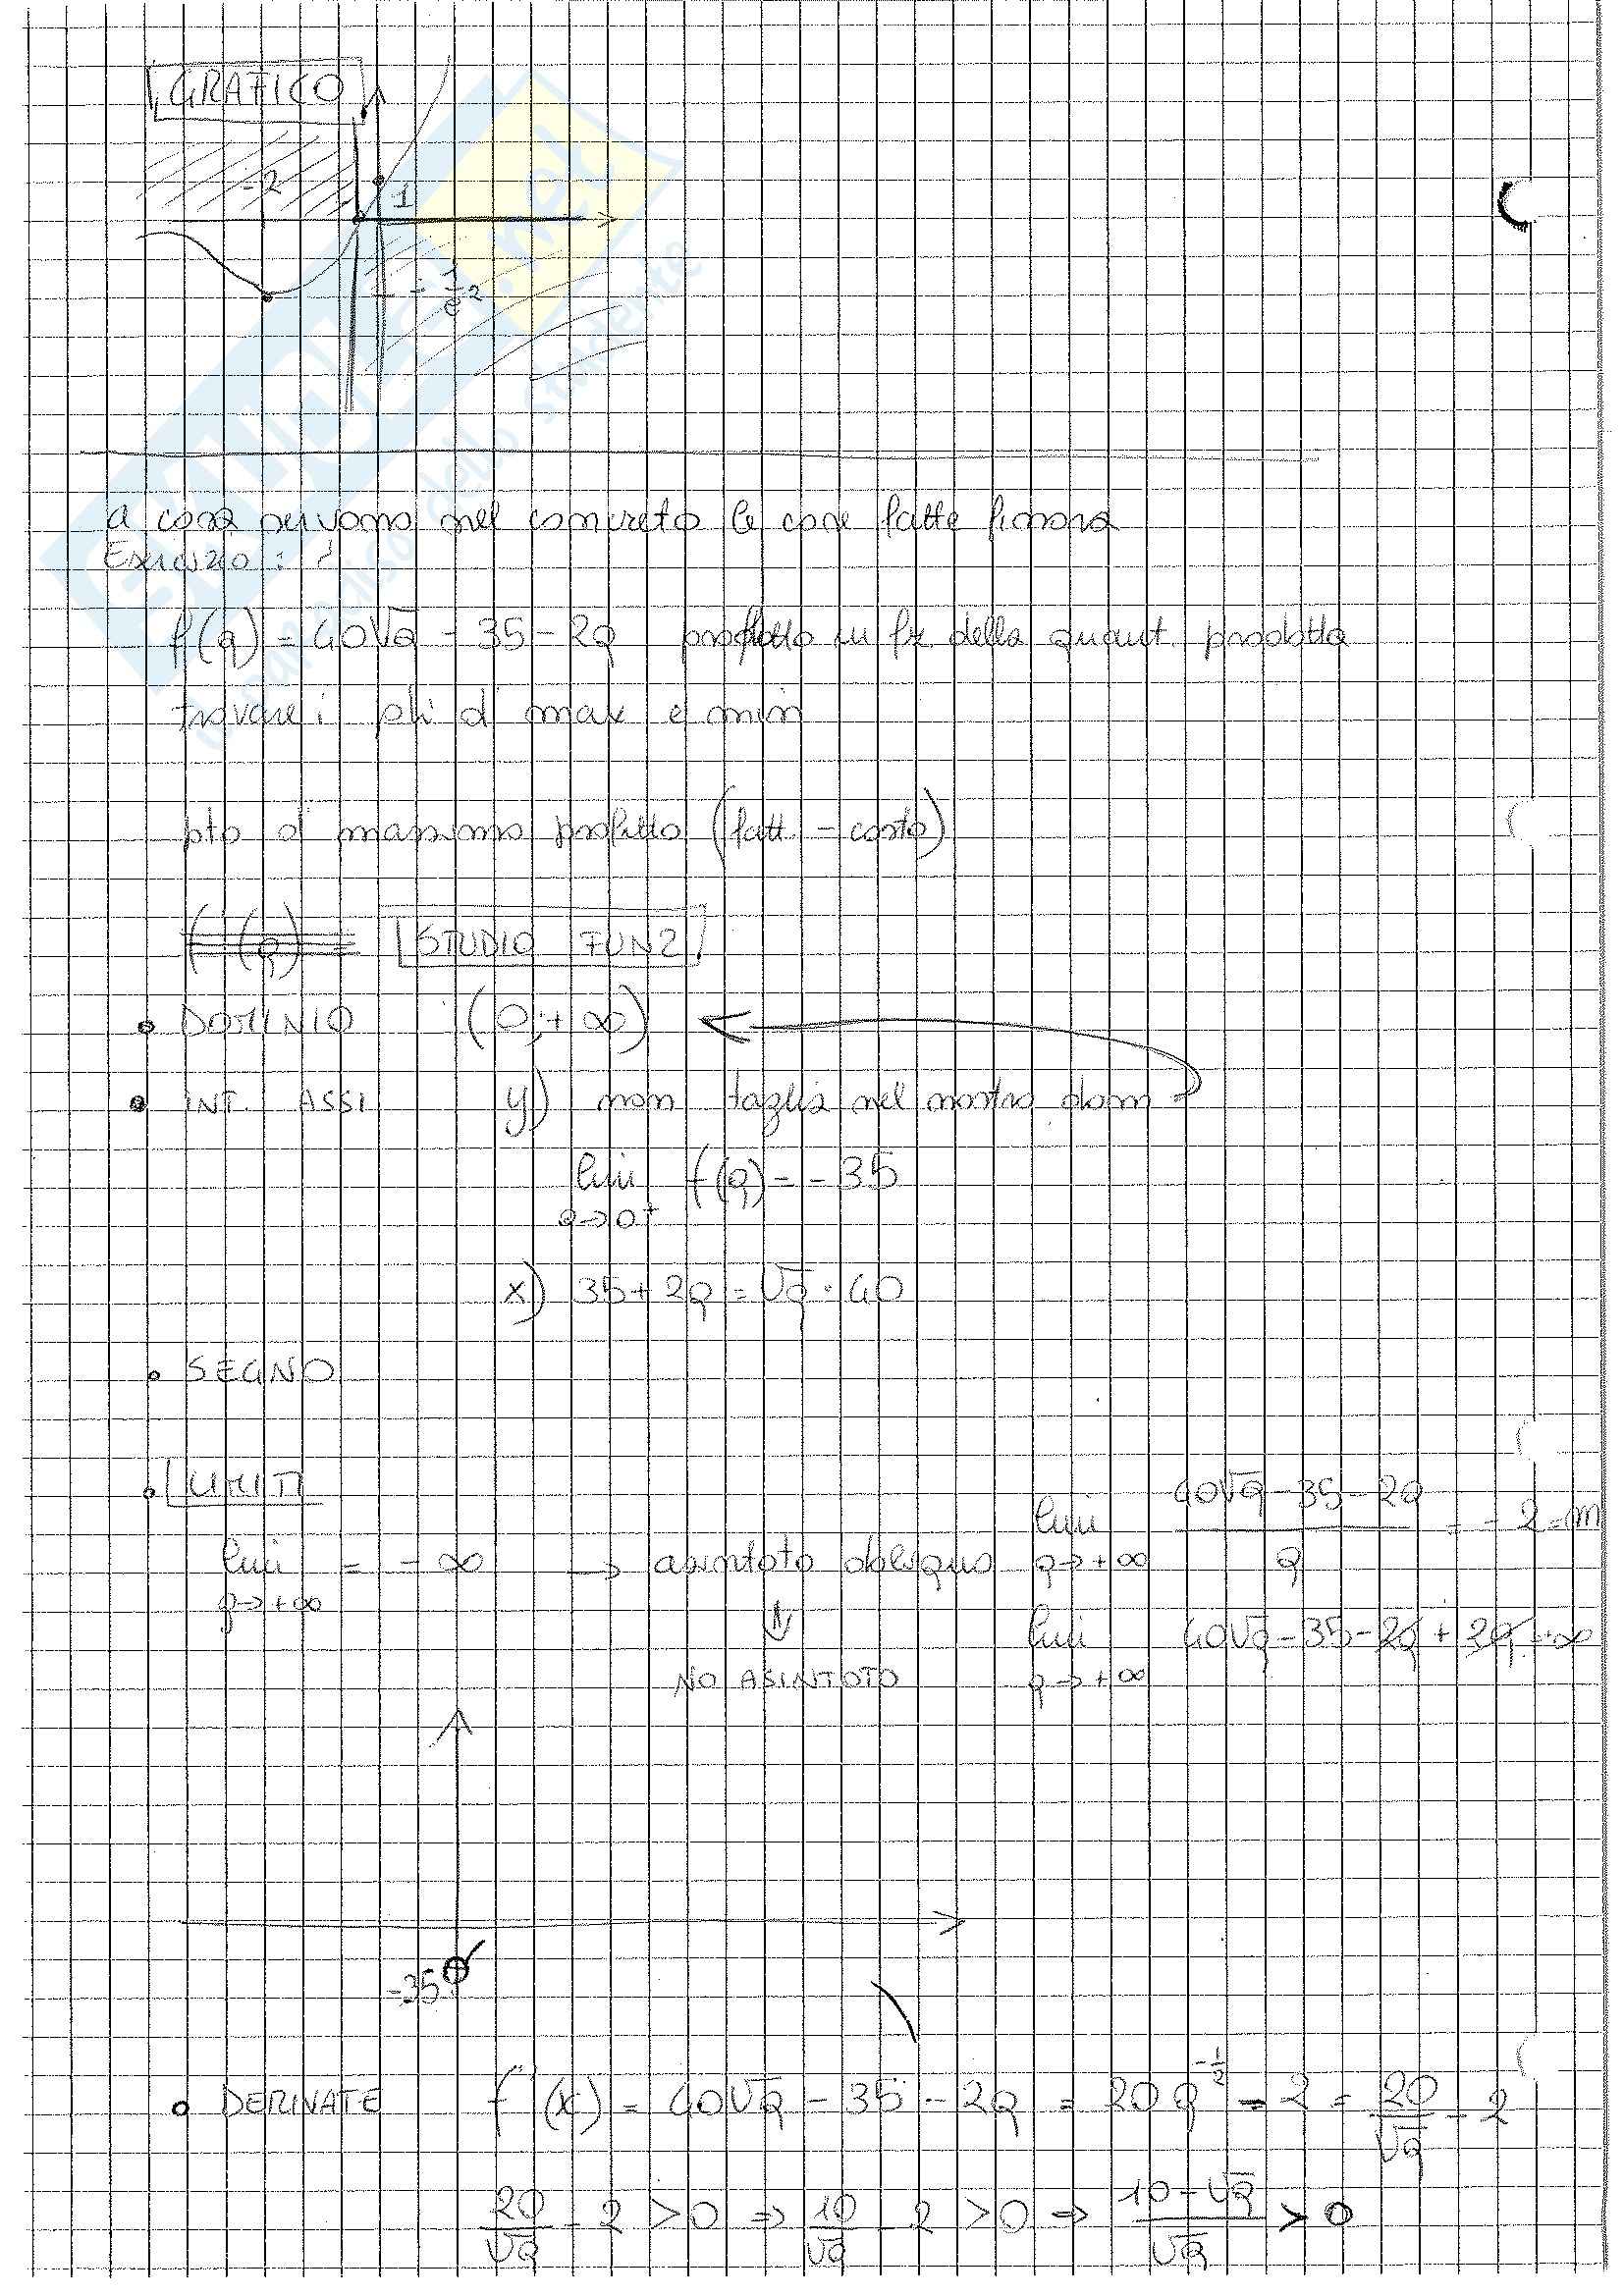 GRAFICO
-2
1
- 1/e²
a cosa servono nel concreto le cose fatte finora
Esercizio :
f(q) = 40√q - 35 - 2q profitto in fz della quant. prodotta
trovare i pti di max e min
pto di massimo profitto (fatt - costo)
f'(q) = STUDIO FUNZ
• DOMINIO (0;+∞)
• INT. ASSI y) non taglia nel nostro dom
lim f(q) = -35
q→0+
x) 35 + 2q = √q · 40
• SEGNO
• LIMITI
lim = -∞ → asintoto obliquo lim (40√q - 35 - 2q)/q = -2 = m
q→+∞ q→+∞
lim 40√q - 35 - 2q + 2q = +∞
NO ASINTOTO q→+∞
-35
• DERIVATE f'(x) = 40√q - 35 - 2q = 20q^-1/2 - 2 = 20/√q - 2
20/√q - 2 > 0 ⇒ 10/√q - 2 > 0 ⇒ (10-√q)/√q > 0